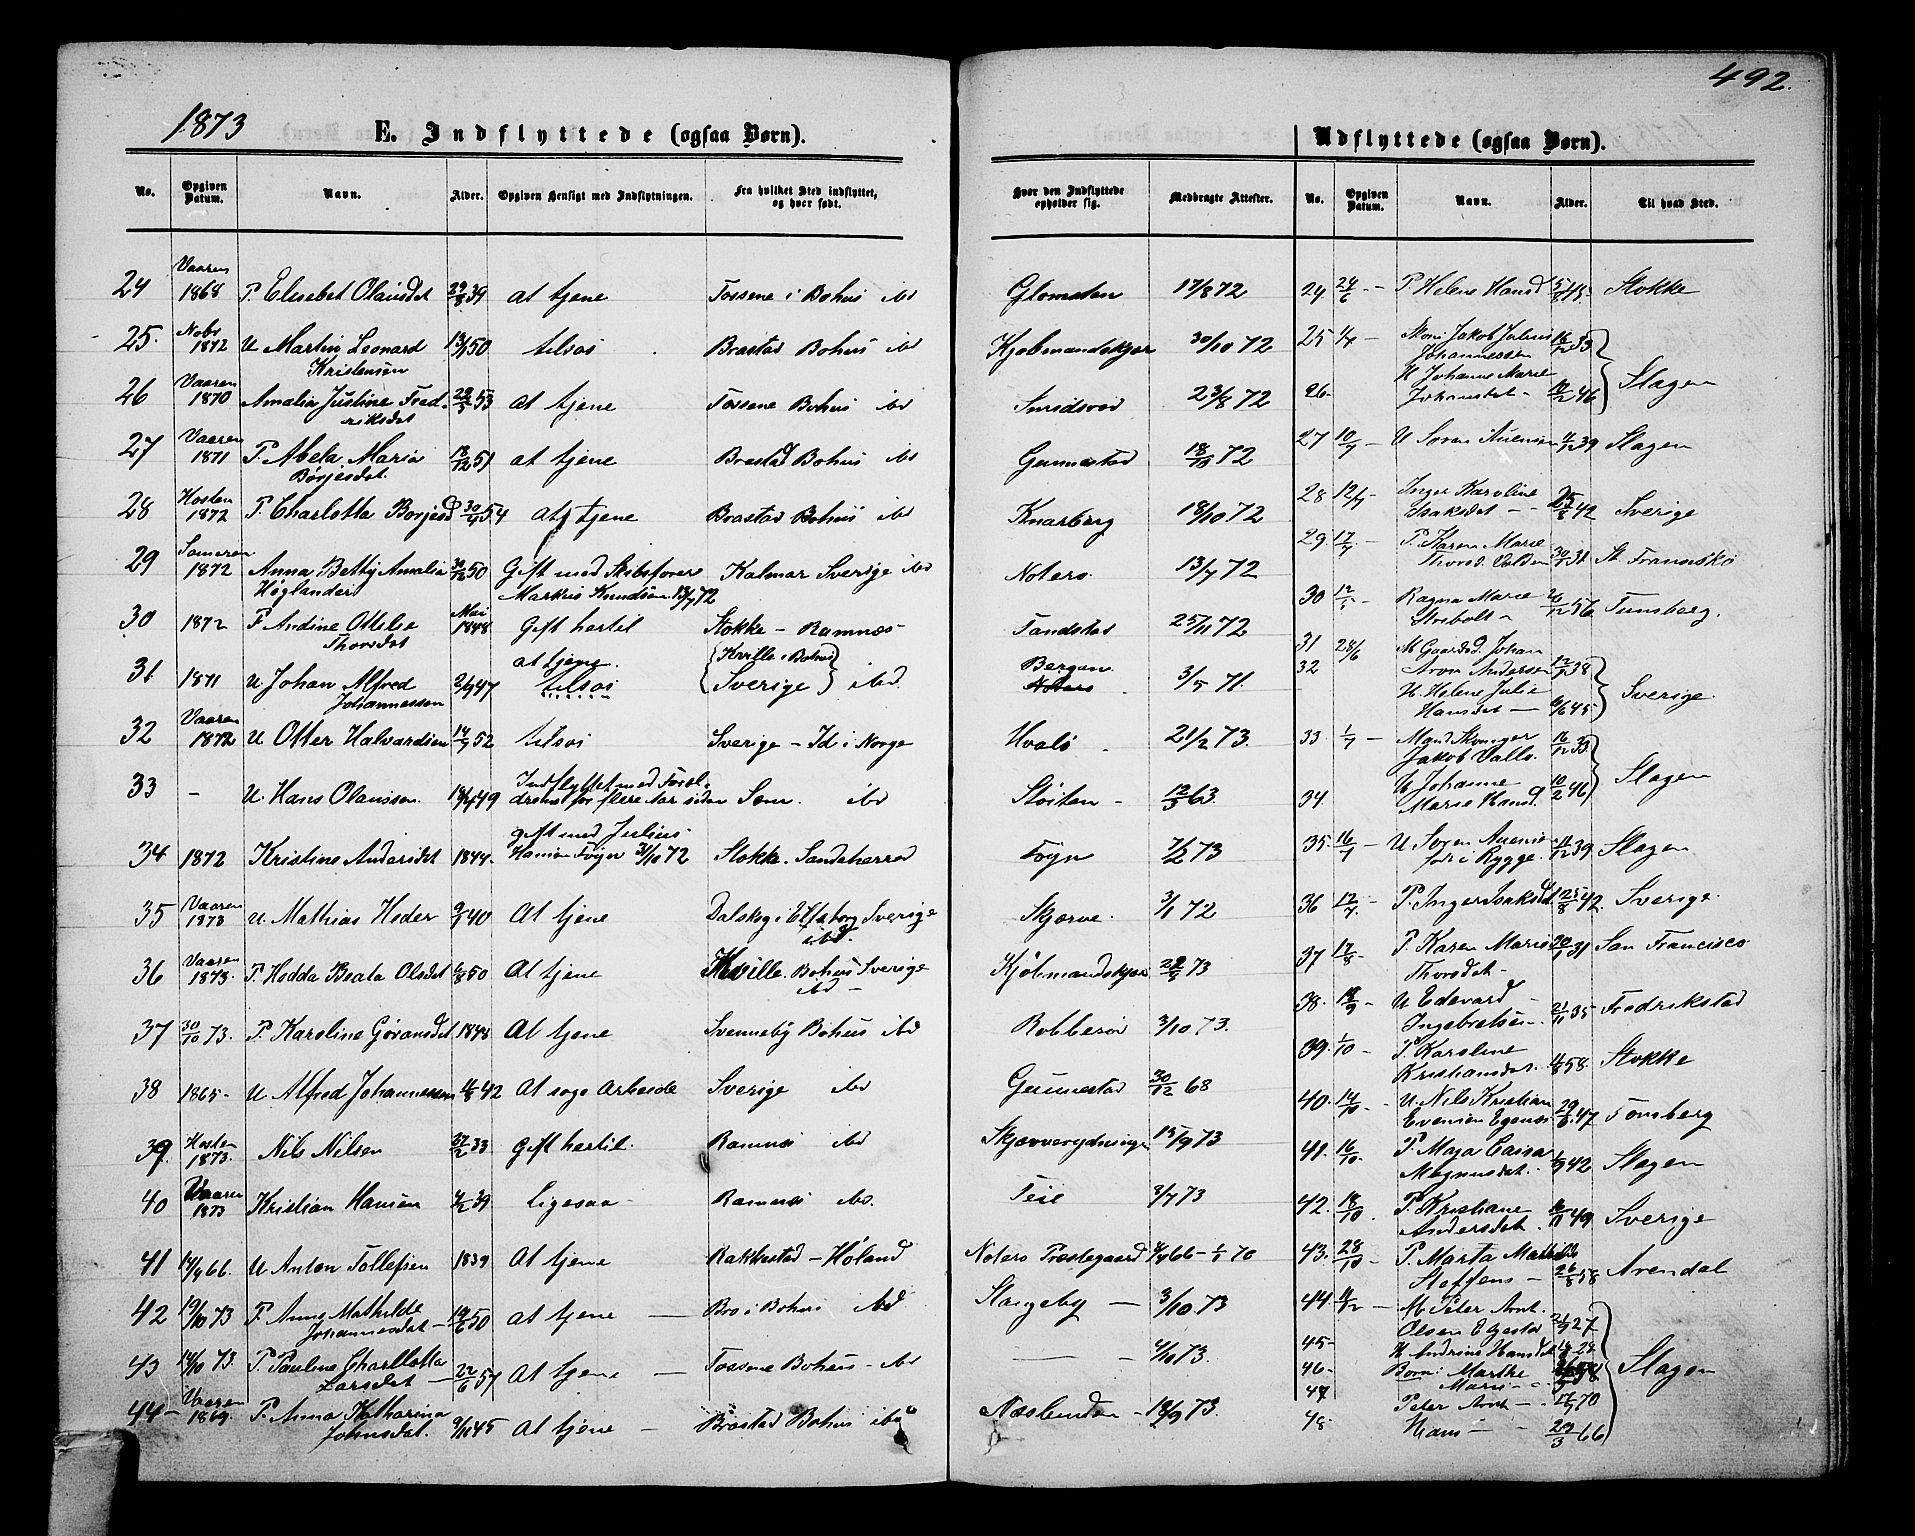 492.
1873
E. Indflyttede (ogsaa Børn).
Udflyttede (ogsaa Børn).
No. Opgiven Datum. Navn. Alder. Opgiven Hensigt med Indflytningen. Fra hvilket Sted indflyttet, og hvor født. Hvor den Indflyttede opholder sig. Medbragte Attester.
No. Opgiven Datum. Navn. Alder. Til hvad Sted.
24 Vaaren 1868 P. Elisebet Olausdet 39 at tjene Tossene i Bohus ibd Glomsten 17/8 72
25. Nobr 1872 U Martin Leonard Kristensen 50 tilsøs Brastad Bohus ibd Kjøbmandskjær 30/10 72
26 Vaaren 1870 Amalia Justine Fredriksdet 53 at tjene Tossene Bohus ibd Smidsrød 23/8 72
27 Vaaren 1871 P. Abela Maria Börjesdet. 51 at tjene Brastad Bohus ibd Gunnestad 18/10 72
28 Høsten 1872 P. Charlotta Borjesd 30/9 54 at tjene Brastad Bohus ibd Knarberg 18/10 72
29 Someren 1872 Anna Betty Amalia Høglander 30/12 50 Gift med Skibsfører Markus Knudsen 13/7 72 Kalmar Sverige ibd Noterø 13/7 72
30 1872 P Andine Ottilie Thorsdet Mai 1848 Gift hertil Stokke - Ramnæs Tandstad 25/11 72
31 1871 U Johan Alfred Johannessen 2/9 47 at tjene. tilsøs Kville i Bohus Sverige ibd. Bergan Noterø 3/5 71.
32 Vaaren 1872 U Otter Halvardsen 14/9 52 tilsøs Sverige - Id i Norge Hvalø 21/2 73.
33 - U. Hans Olaussen. 49 Indflyttet med Forældrene for flere Aar siden Sem. ibd Støiten - 63.
34 1872 Kristine Andersdet 1844. gift med Julius Hansen Føyn 3/10 72 Stokke. Sandeherred Føyn 7/2 73
35 Vaaren 1873 U. Mathias Heder 40 At tjene Dalskog i Elfsborg Sverige ibd. Skjærve. 3/1 72
36 Vaaren 1873. P. Hedda Beata Olsdet 50 At tjene Kville. Bohus Sverige ibd - Kjøbmandskjær 73
37 30/10 73. P. Karoline Göransdet 1848 At tjene Svenneby Bohus ibd Robberød 3/10 73.
38 1865- U Alfred Johannessen 42 At søge Arbeide Sverige ibd Gunnestad 30/12 68
39. Høsten 1873. Nils Nilsen 33 Gift hertil. Ramnæs ibd Skjærverydningen 15/9 73
40 Vaaren 1873 Kristian Hansen 39 Ligesaa - Ramnæs ibd. Teie 3/7 73
41 14/4 66. U Anton Tollefsen 1839 At tjene Rakkestad - Høland Noterø Præstegaard 66 - 70
42 19/10 73 P. Anne Mathilde Johannesdet - 50 At tjene - Bro i Bohus ibd Stangeby - 3/10 73
43 14/10 73. P. Pauline Charllotta Larsdet - 22/6 57 At tjene - Tossene Bohus - ibd - 4/10 73.
44- Vaaren 1869. P. Anna Katharina Johnsdet. 9/11 45 At tjene - Brastad Bohus ibd Næsbunden - 18/9 73.
24 24/6 - P Helene Hansd 45 Stokke
25 Skom. Jakob Julius Johannessen 16/12 33
26. U Johanne Marie Johansdet - 46 Slagen
27 10/7 - U Søren Auensen 39 Slagen
28 12/7 - Inger Karoline Isaksdet - - 25/8 42 Sverige
29. 17/7 - P. Karen Marie Thorsd. Valden 31 St Fransisko
30 Ragna Marie Stribolt - 56 Tunsberg.
31 28/6 M Gaardsd. Johan Aron Andersen 38
32 U. Helene Julie Hansdet - 45 Sverige.
33. 1/7 - Mand Skomager Jakob Vallø 33
34. U Johanne Marie Hansd. 10/2 46 Slagen
35. 16/7 - U Søren Auensen før i Rygge. 39 Slagen
36 12/7. - P. Inger Isaksdet 25/8 42. Sverige.
37 17/8 - P. Karen Marie Thorsdet - 31 San Francisco
38. - U Edevard Ingebretsen - 35 Fredrikstad
39. 1/10 - P. Karoline Kristiansdet. 58. Stokke
40. 14/10 - U. Nils Kristian Evensen Egenæs 29/8 47 Tønsberg
41. 16/10. P. Maja Caisa Magnusdet. - 42 Slagen
42. 18/10. P. Kristiane Andersdet. 49 Sverige
43. 28/10 - P. Marta Steffens - 26/8 58 Arendal
44. - M. Peter Arnt. Olsen Ekestad 27
45- U Andrine Hansdet 24
46- Børn Marthe Marie -
47 Peter Arnt - 70
48 Hans - - 29/3 66 Slagen